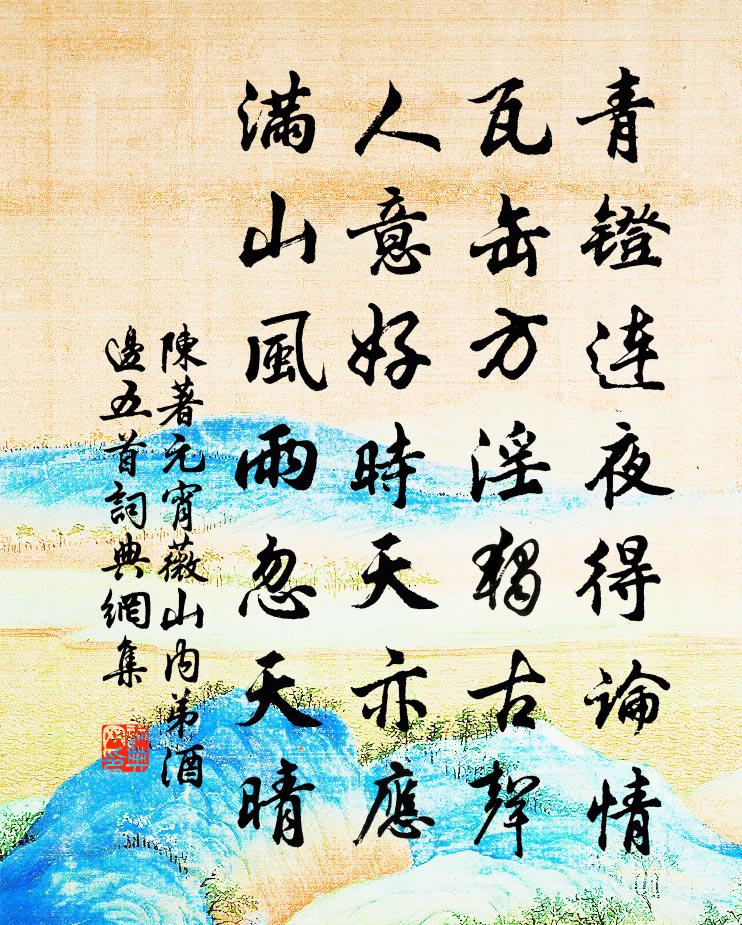 青鐙連夜得論情
瓦缶方淫獨古聲
人意好時天亦應
滿山風雨忽天晴
陳著元宵薇山內弟酒
邊五首詞典網集